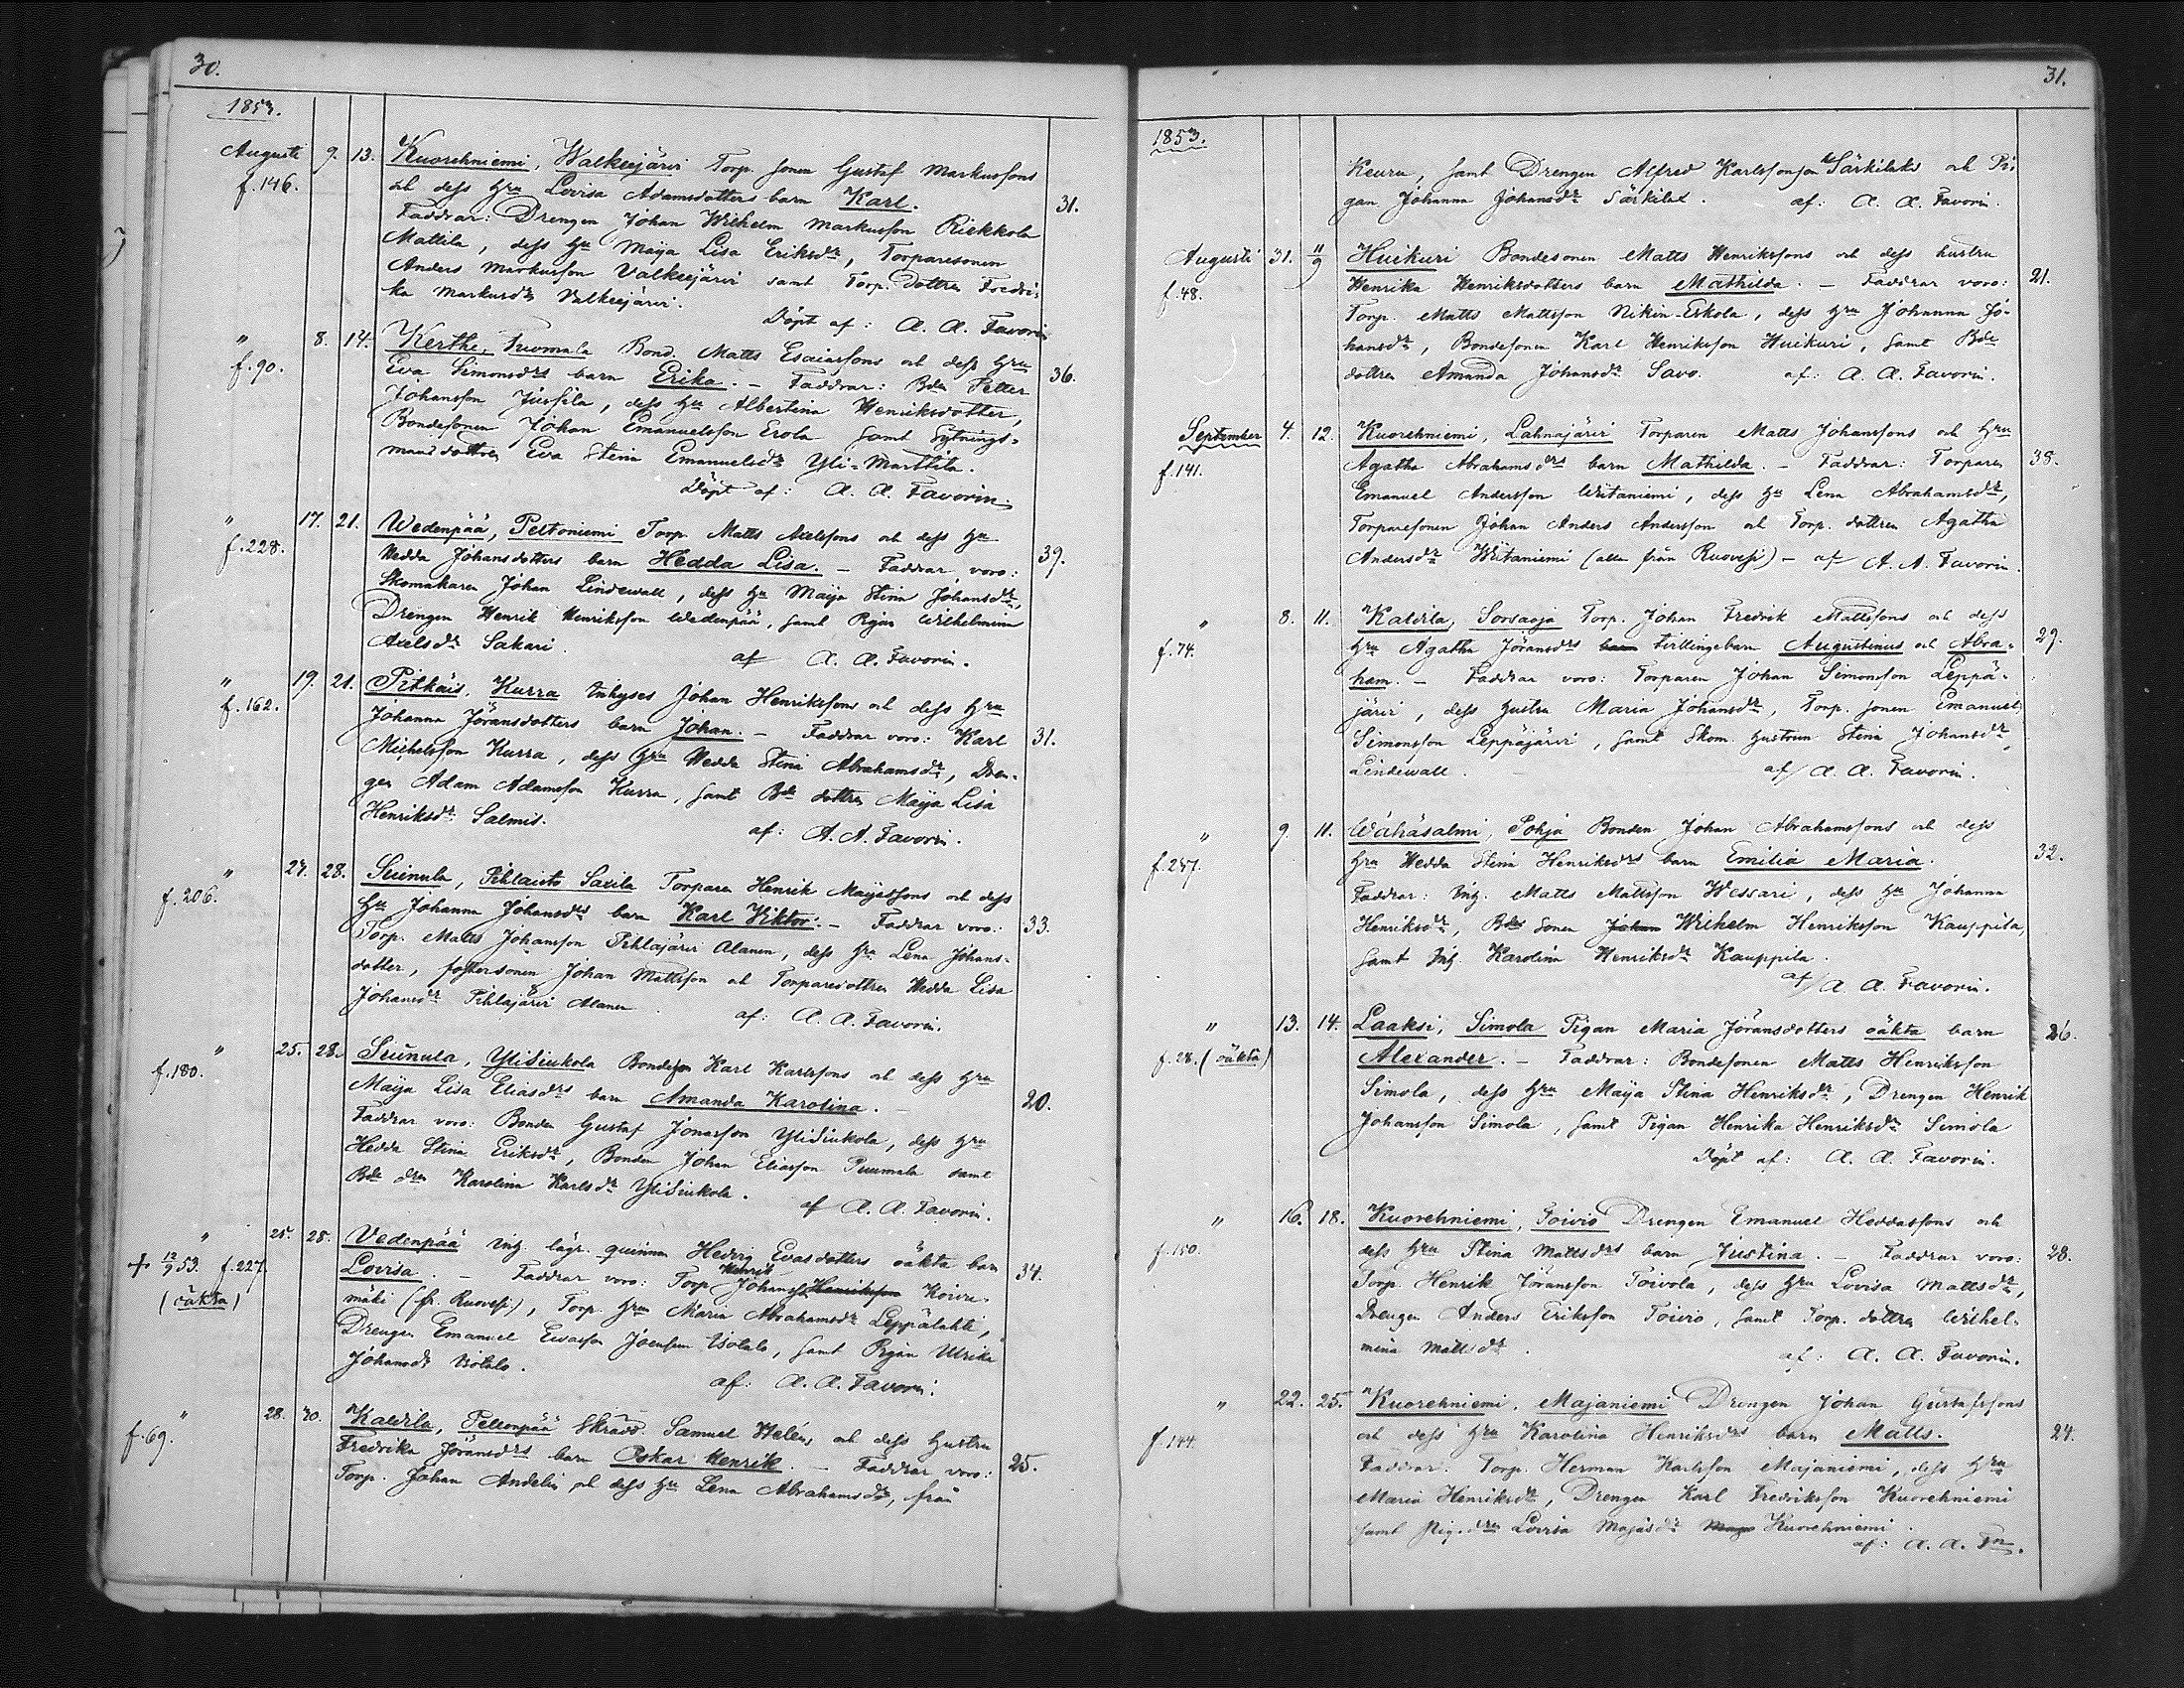 30.
1853.
Augusti 9. 13. Kuorehniemi, Walkeejärvi Torp. sonen Gustaf Markussons
f. 146. och dess Hru Lovisa Adamsdotters barn Karl. 31.
Faddrar: Drengen Johan Wilhelm Markusson Riekkola
Mattila, dess Hu Maija Lisa Eriksdr, Torparesonen
Anders Markusson Valkeejärvi samt Torp. dottren Fredri-
ka Markusdr Valkeejärvi.
Döpt af: A. A. Favorin
" 8. 14. Kerthe, Tuomala Bond. Matts Esaiassons och dess Hru
f. 90. Eva Simonsdrs barn Erika. – Faddrar: Bdn Petter 36.
Johansson Jussila, dess Hu Albertina Henriksdotter,
Bondesonen Johan Emanuelsson Erola samt Sytnings-
mansdottren Eva Stina Emanuelsdr Yli-Marttila.
Döpt af: A. A. Favorin.
" 17. 21. Wedenpää, Peltoniemi Torp. Matts Axelssons och dess Hu
f. 228. Hedda Johansdotters barn Hedda Lisa. – Faddrar voro: 39.
Skomakaren Johan Lindewall, dess Hu Maija Stina Johansdr,
Drengen Henrik Henriksson Wedenpää, samt Pigan Wilhelmina
Axelsdr Sakari.
af A. A. Favorin.
" 19. 21. Pitkäis, Kurra Inhyses Johan Henrikssons och dess Hru
f. 162. Johanna Jöransdotters barn Johan. – Faddrar voro: Karl 31.
Michelsson Kurra, dess Hru Hedda Stina Abrahamsdr, Dren-
gen Adam Adamsson Kurra, samt Bde dottren Maija Lisa
Henriksdr Salmis.
af: A. A. Favorin.
" 27. 28. Suinula, Pihlaisto Saxila Torparen Henrik Maijassons och dess
f. 206. Hu Johanna Johansdrs barn Karl Viktor. – Faddrar voro: 33.
Torp. Matts Johansson Pihlajärvi Alanen, dess Hru Lena Johans-
dotter, fostersonen Johan Mattsson och Torparedottren Hedda Lisa
Johansdr Pihlajärvi Alanen.
af: A. A. Favorin.
" 25. 28. Suinula, YliSiukola Bondeson Karl Karlssons och dess Hru
f. 180. Maija Lisa Eliasdrs barn Amanda Karolina. – 20.
Faddrar voro: Bonden Gustaf Jonasson YliSiukola, dess Hru
Hedda Stina Eriksdr, Bonden Johan Eliasson Puumala samt
Bde dren Karolina Karlsdr YliSiukola.
af A. A. Favorin.
" 25. 28. Vedenpää Inh. lägr. quinnan Hedvig Evasdotters oäkta barn
+ 12/9 53. f. 227. Lovisa. – Faddrar voro: Torp. Henrik Johansson Henriksson Koivu- 34.
(oäkta) mäki (fr. Ruovesi), Torp. Hru Maria Abrahamsdr Leppälahti,
Drengen Emanuel Evasson Joensuu Isotalo, samt Pigan Ulrika
Johansdr Isotalo.
af: A. A. Favorin.
" 28. 30. Kaldila, Peltonpää Skradd. Samuel Heléns och dess Hustru
f. 69. Fredrika Jöransdrs barn Oskar Henrik. – Faddrar voro: 25.
Torp. Johan Andelin och dess Hu Lena Abrahamsdr, från
31.
1853.
Keuru, samt Drengen Alfred Karlsson Särkilaks och Pi-
gan Johanna Johansdr Särkilat. af: A. A. Favorin.
Augusti 31. 11/9 Huikuri Bondesonen Matts Henrikssons och dess hustru
f. 48. Henrika Henriksdotters barn Mathilda. – Faddrar voro: 21.
Torp. Matts Mattsson Nikin-Eskola, dess Hru Johanna Jo-
hansdr, Bondesonen Karl Henriksson Huikuri, samt Bde
dottren Amanda Johansdr Savo. af: A. A. Favorin.
September 4. 12. Kuorehniemi, Lahnajärvi Torparen Matts Johanssons och Hru
f. 141. Agatha Abrahamsdrs barn Mathilda. – Faddrar: Torparen 38.
Emanuel Andersson Wiitaniemi, dess Hu Lena Abrahamsdr,
Torparesonen Johan Anders Andersson och Torp. dottren Agatha
Andersdr Wiitaniemi (alla från Ruovesi) – af A. A. Favorin.
" 8. 11. Kaldila, Sorsaoja Torp. Johan Fredrik Mattssons och dess
f. 74. Hru Agatha Jöransdrs barn tvillingebarn Augustinus och Abra- 29.
ham. – Faddrar voro: Torparen Johan Simonsson Leppä-
järvi, dess hustru Maria Johansdr, Torp. sonen Emanuel
Simonsson Leppäjärvi, samt Skom. hustrun Stina Johansdr
Lindewall. af A. A. Favorin.
" 9. 11. Wähäsalmi, Pohja Bonden Johan Abrahamssons och dess
f. 247. Hru Hedda Stina Henriksdrs barn Emilia Maria. 32.
Faddrar: Inh. Matts Mattsson Wessari, dess Hu Johanna
Henriksdr, Bdes sonen Johan Wilhelm Henriksson Kauppila,
samt Inh. Karolina Henriksdr Kauppila.
af A. A. Favorin.
" 13. 14. Laaksi, Simola Pigan Maria Jöransdotters oäkta barn 26.
f. 28. (oäkta) Alexander. – Faddrar: Bondesonen Matts Henriksson
Simola, dess Hru Maija Stina Henriksdr, Drengen Henrik
Johansson Simola, samt Pigan Henrika Henriksdr Simola
Döpt af: A. A. Favorin.
" 16. 18. Kuorehniemi, Toivio Drengen Emanuel Heddassons och
f. 150. dess Hru Stina Mattsdrs barn Justina. – Faddrar voro: 28.
Torp. Henrik Jöransson Toivola, dess Hru Lovisa Mattsdr,
Drengen Anders Eriksson Toivio, samt Torp. dottren Wilhel-
mina Mattsdr. af: A. A. Favorin.
" 22. 25. Kuorehniemi, Majaniemi Drengen Johan Gustafssons
f. 144. och dess Hru Karolina Henriksdrs barn Matts. 24.
Faddrar: Torp. Herman Karlsson Majaniemi, dess Hru
Maria Henriksdr, Drengen Karl Fredriksson Kuorehniemi
samt Pig. dren Lovisa Majasdr Kuorehniemi.
af: A. A. Fn.